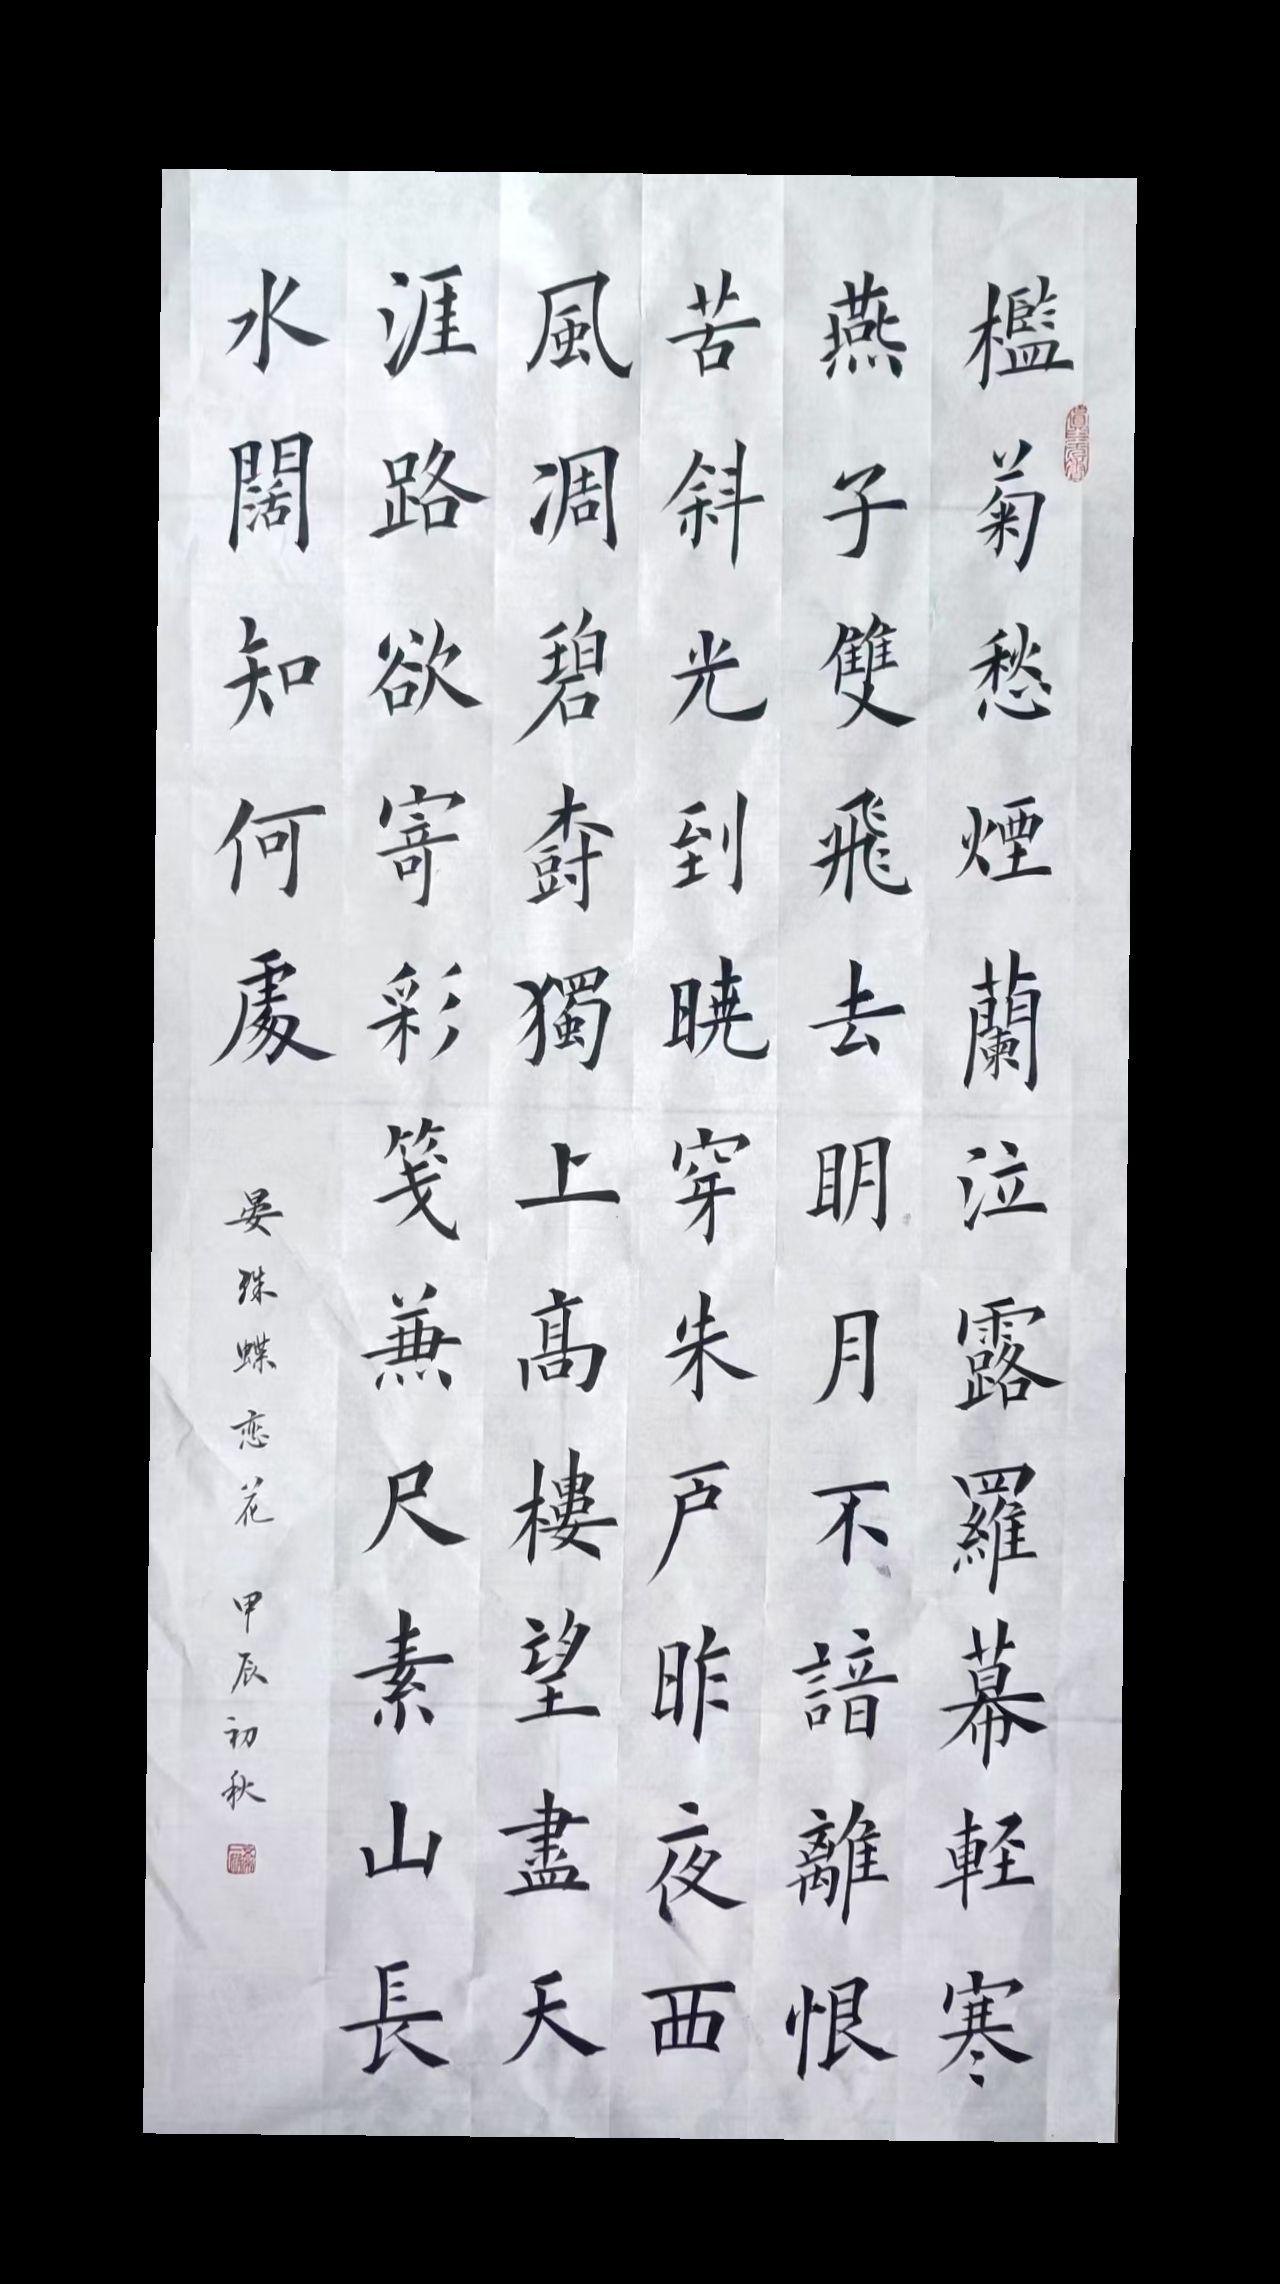 檻菊愁煙蘭泣露羅幕輕寒
燕子雙飛去明月不諳離恨
苦斜光到曉穿朱戶昨夜西
風凋碧樹獨上高樓望盡天
涯路欲寄彩箋蒹尺素山長
水闊知何處
晏殊蝶恋花 甲辰初秋